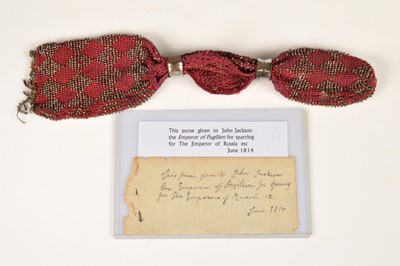 This purse given to John Jackson
the Emperor of Pugilism for sparring
for The Emperor of Russia etc
June 1814
This purse given to John Jackson
the Emperor of Pugilism for sparring
for The Emperor of Russia
June 1814